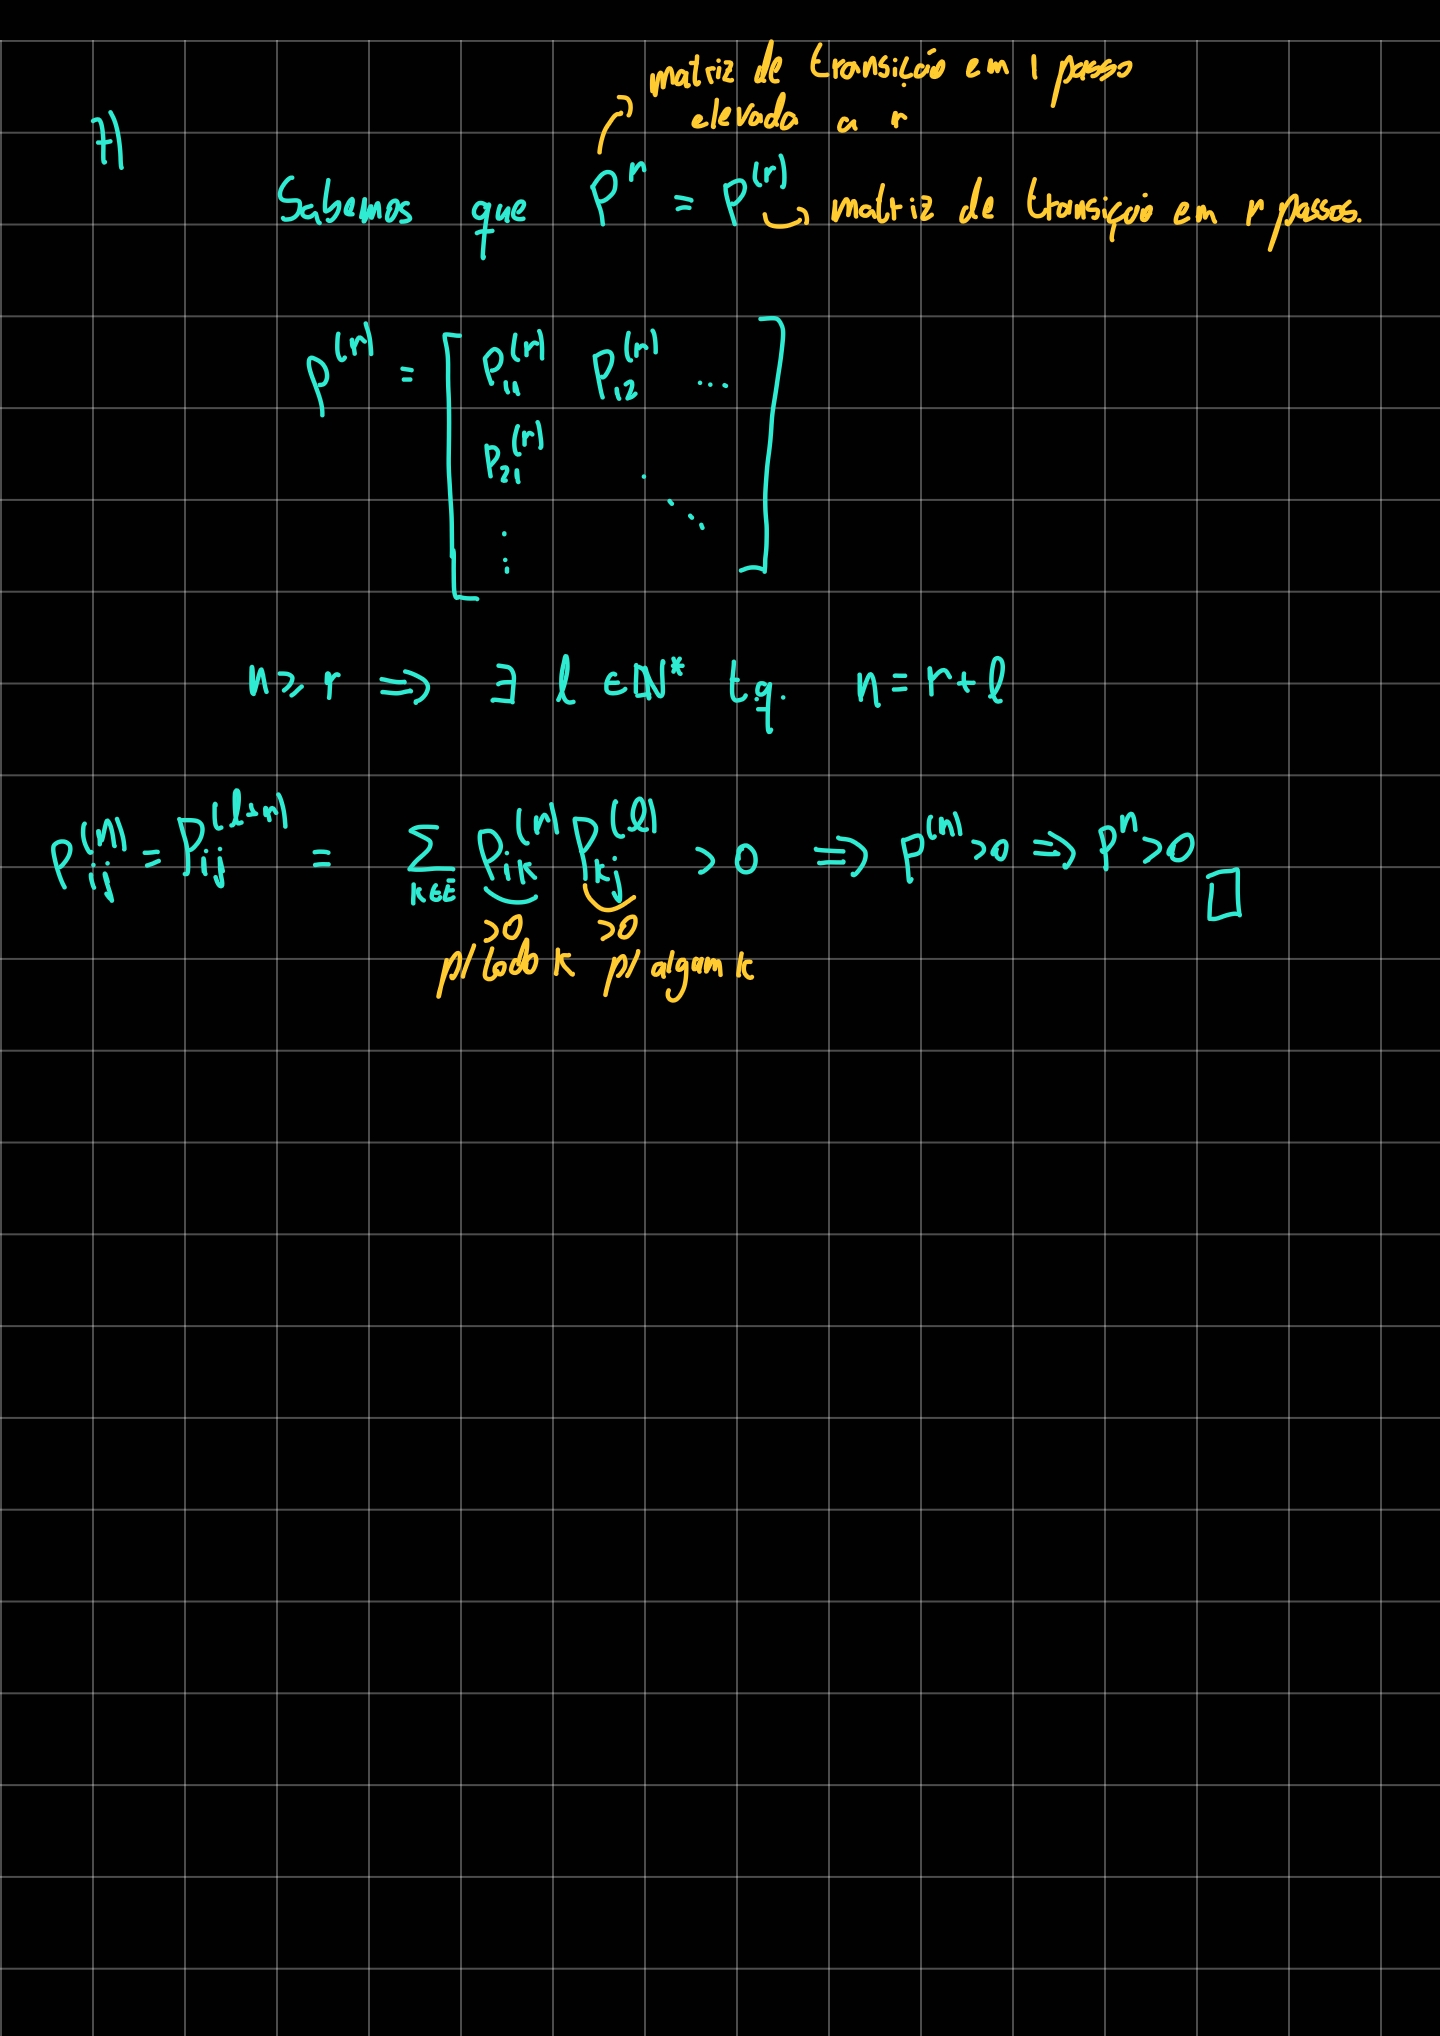 matriz de transição em 1 passo
elevada a r
7)
Sabemos que P^r = P^(r) matriz de transição em r passos.
P^(r) = [ P_11^(r) P_12^(r) ...
P_21^(r) ⋱
⋮ ]
n ≥ r ⇒ ∃ l ∈ ℕ* tq. n = r + l
P_ij^(n) = P_ij^(l+r) = ∑_{k∈E} P_ik^(r) P_kj^(l) > 0 ⇒ P^(n) > 0 ⇒ P^n > 0 □
>0 >0
p/ todo k p/ algum k